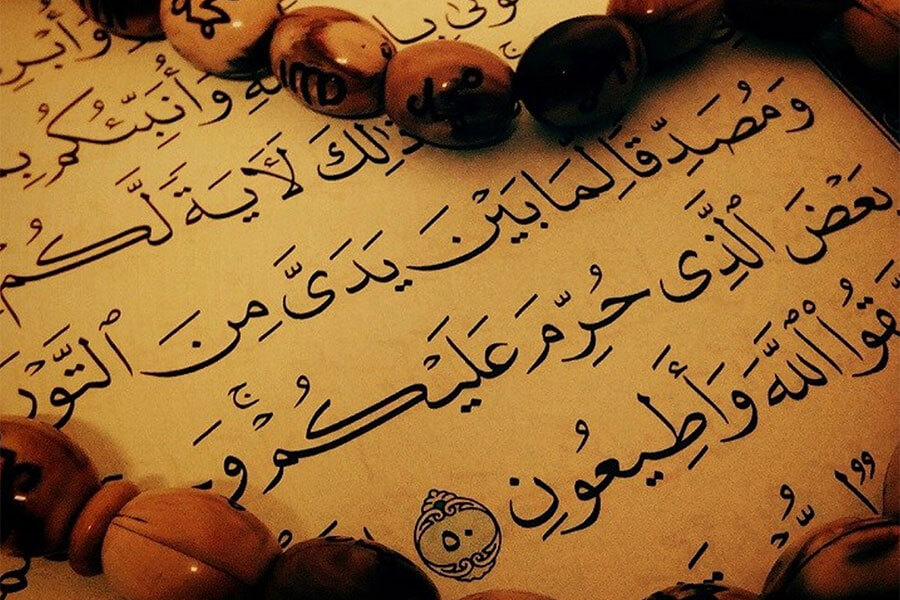 وَأُبْرِ
وَأُنَبِّئُكُم بِ
ذَٰلِكَ لَأَيَةً لَّكُمْ
وَمُصَدِّقًا لِّمَا بَيْنَ يَدَىَّ مِنَ ٱلتَّوْرَ
بَعْضَ ٱلَّذِى حُرِّمَ عَلَيْكُمْ ۚ وَ
تَّقُوا۟ ٱللَّهَ وَأَطِيعُونِ ٥٠